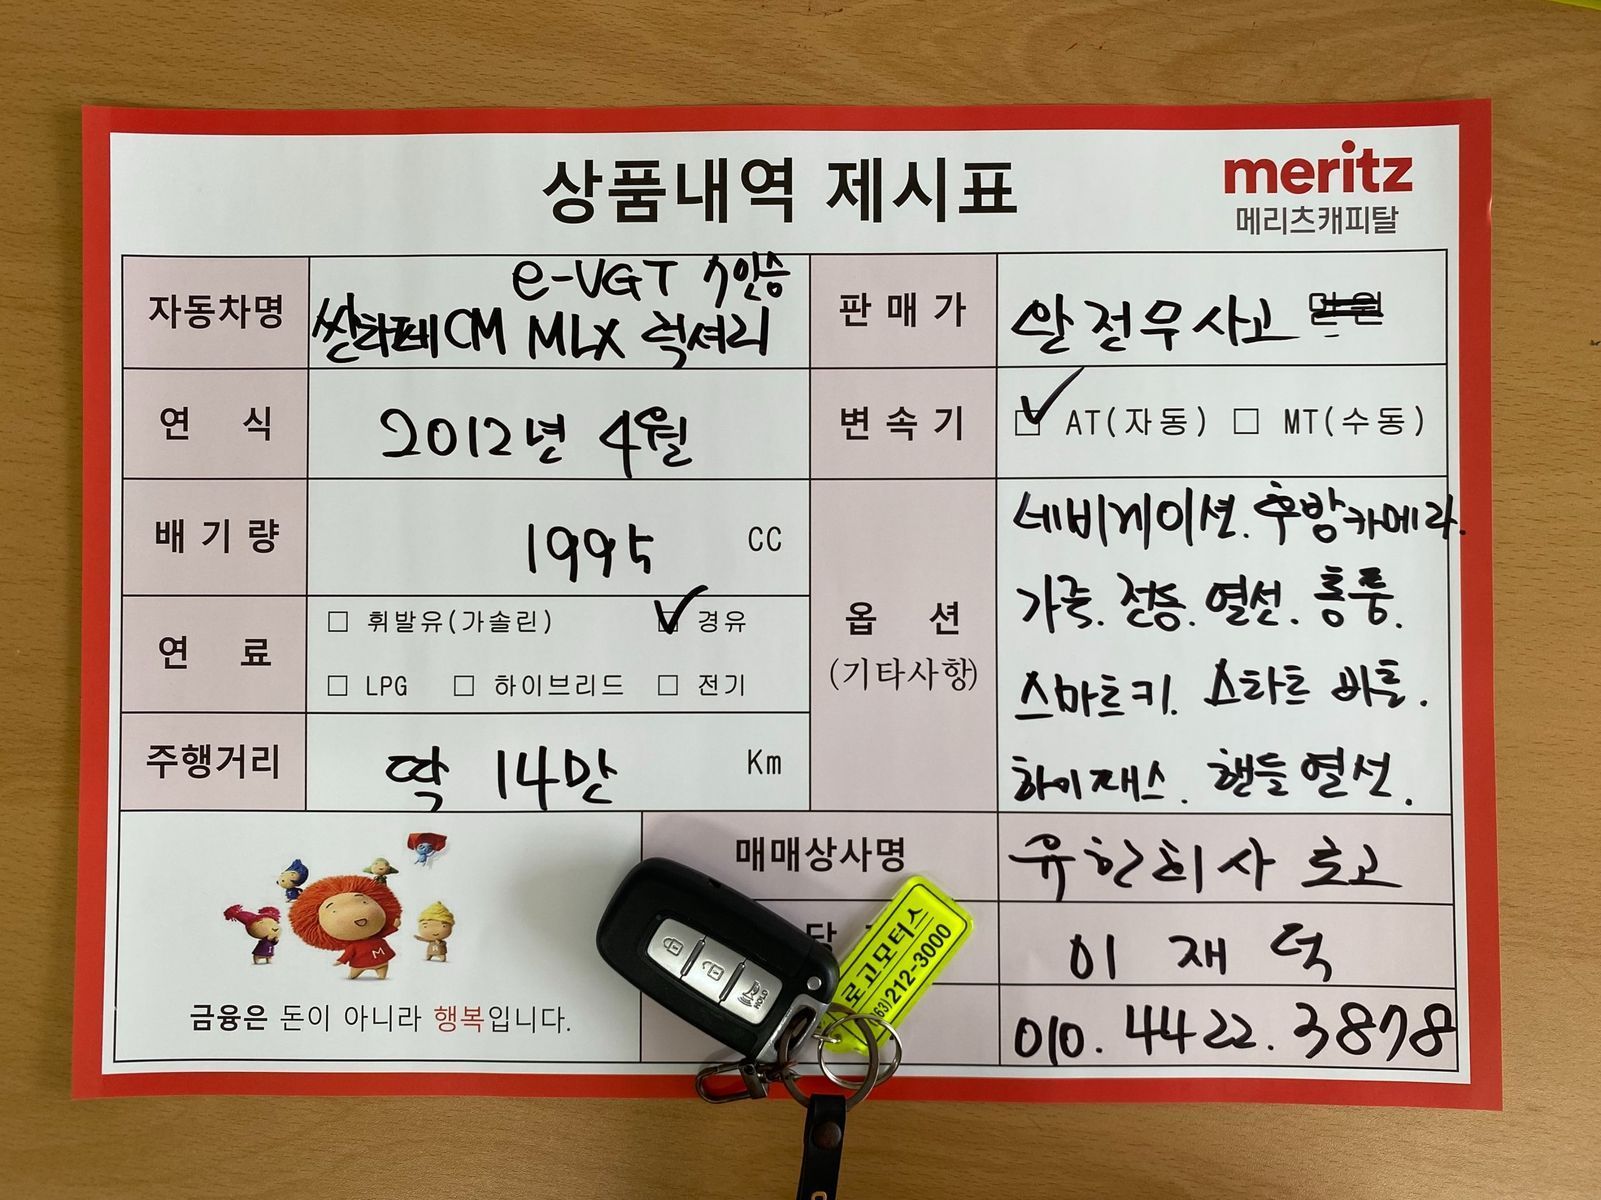 상품내역 제시표
meritz
메리츠캐피탈
자동차명
e-VGT 7인승
싼타페CM MLX 럭셔리
판매가
완전무사고 만원
연 식
2012년 4월
변속기
AT(자동) MT(수동)
배기량
1995 CC
옵 션
(기타사항)
네비게이션. 후방카메라.
가죽. 전동. 열선. 통풍.
스마트키. 스타트 버튼.
하이패스. 핸들열선.
연 료
휘발유(가솔린) 경유
LPG 하이브리드 전기
주행거리
딱 14만 Km
매매상사명
유한회사 로고
당
이 재 덕
010. 4422. 3878
M
금융은 돈이 아니라 행복입니다.
HOLD
로고모터스
63)212-3000